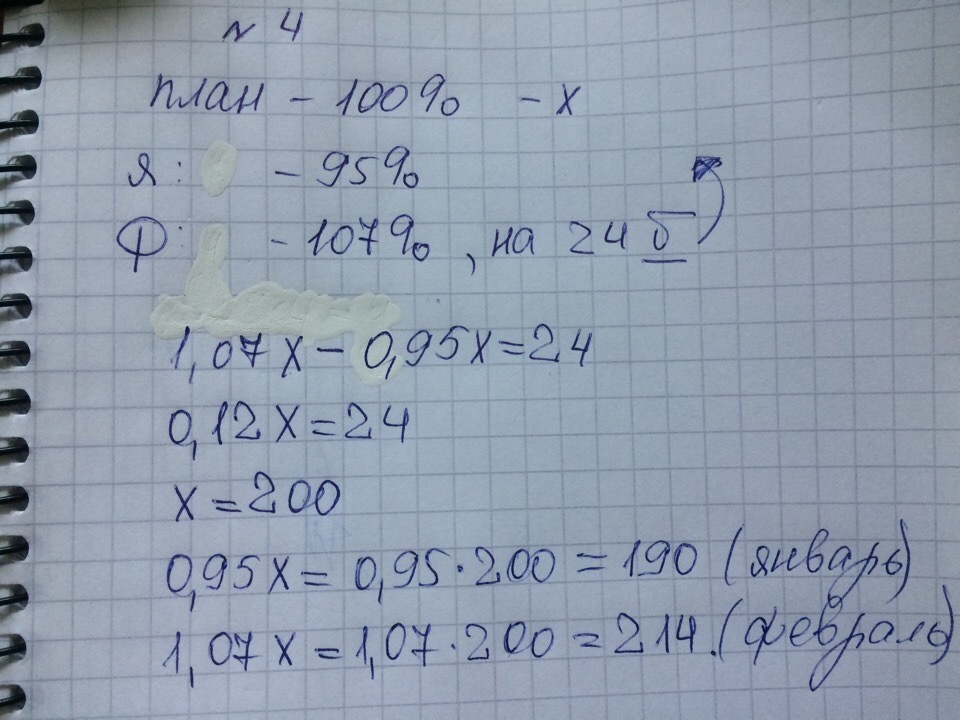 № 4
план - 100% - x
Я: - 95%
Ф: - 107%, на 24 б
1,07x - 0,95x = 24
0,12x = 24
x = 200
0,95x = 0,95·200 = 190 (январь)
1,07x = 1,07·200 = 214. (февраль)